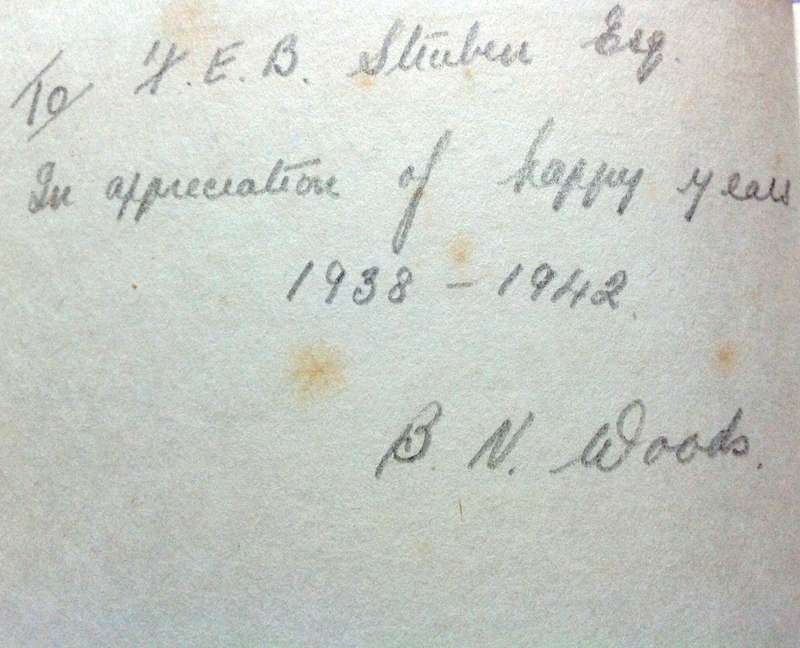 To H. E. B. Stuben Esq.
In appreciation of happy years
1938 - 1942.
B. N. Woods.